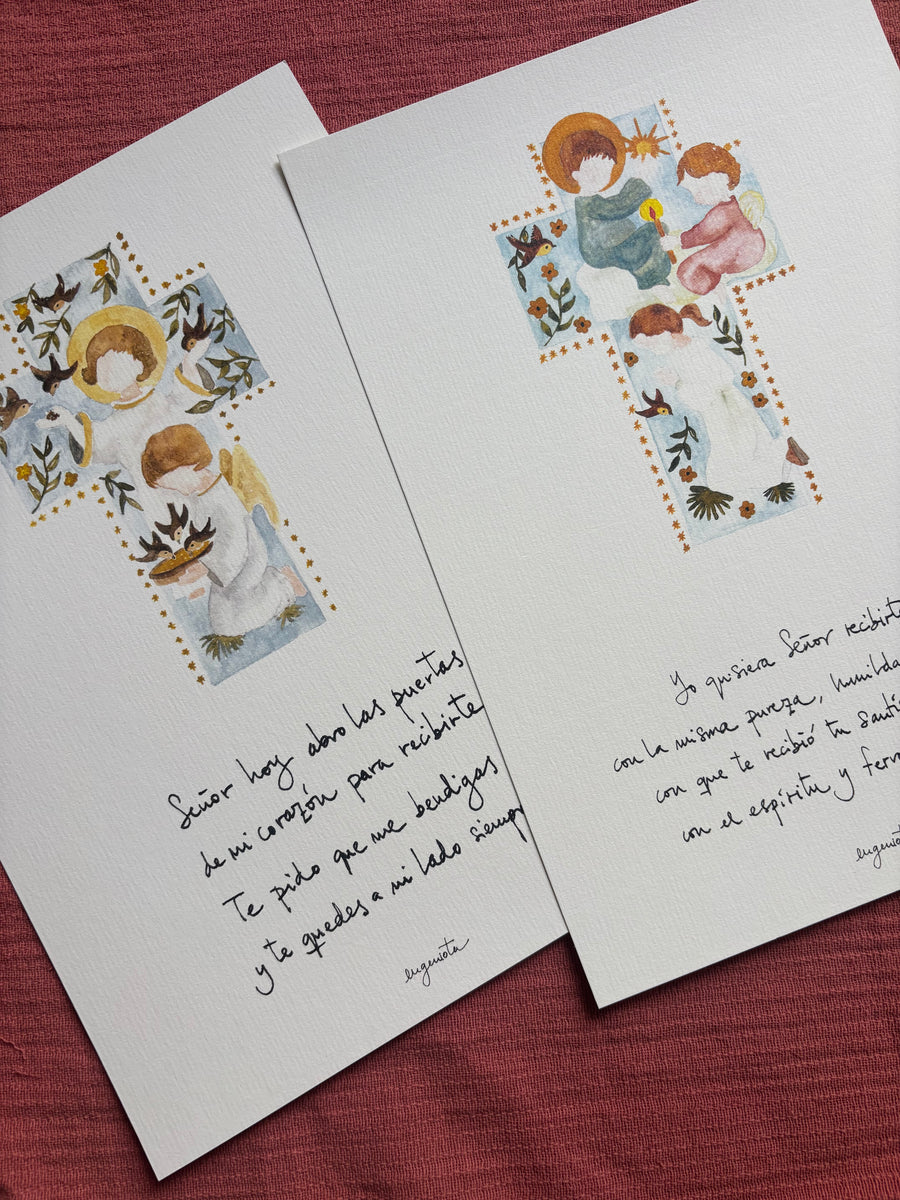 Señor hoy abro las puertas
de mi corazón para recibirte
Te pido que me bendigas
y te quedes a mi lado siemp
eugeniota
Yo quisiera Señor recibirte
con la misma pureza, humilda
con que te recibió tu Santí
con el espíritu y ferv
eugeniota